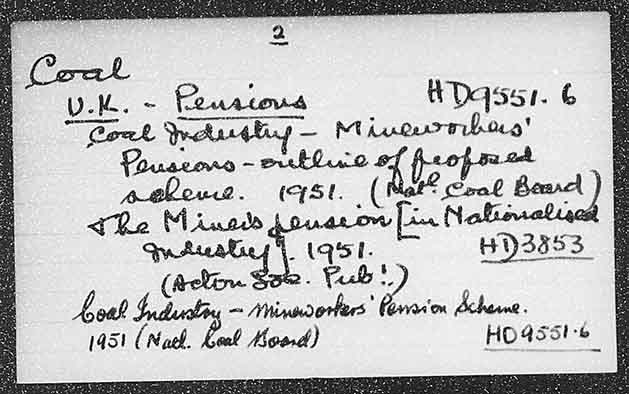 2
Coal
U.K. - Pensions HD9551.6
Coal Industry - Mineworkers'
Pensions - outline of proposed
scheme. 1951. (Natl. Coal Board)
The Miner's pension [in Nationalised
Industry]. 1951. HD3853
(Acton Soc. Pub!.)
Coal Industry - Mineworkers' Pension Scheme.
1951 (Natl. Coal Board) HD9551.6